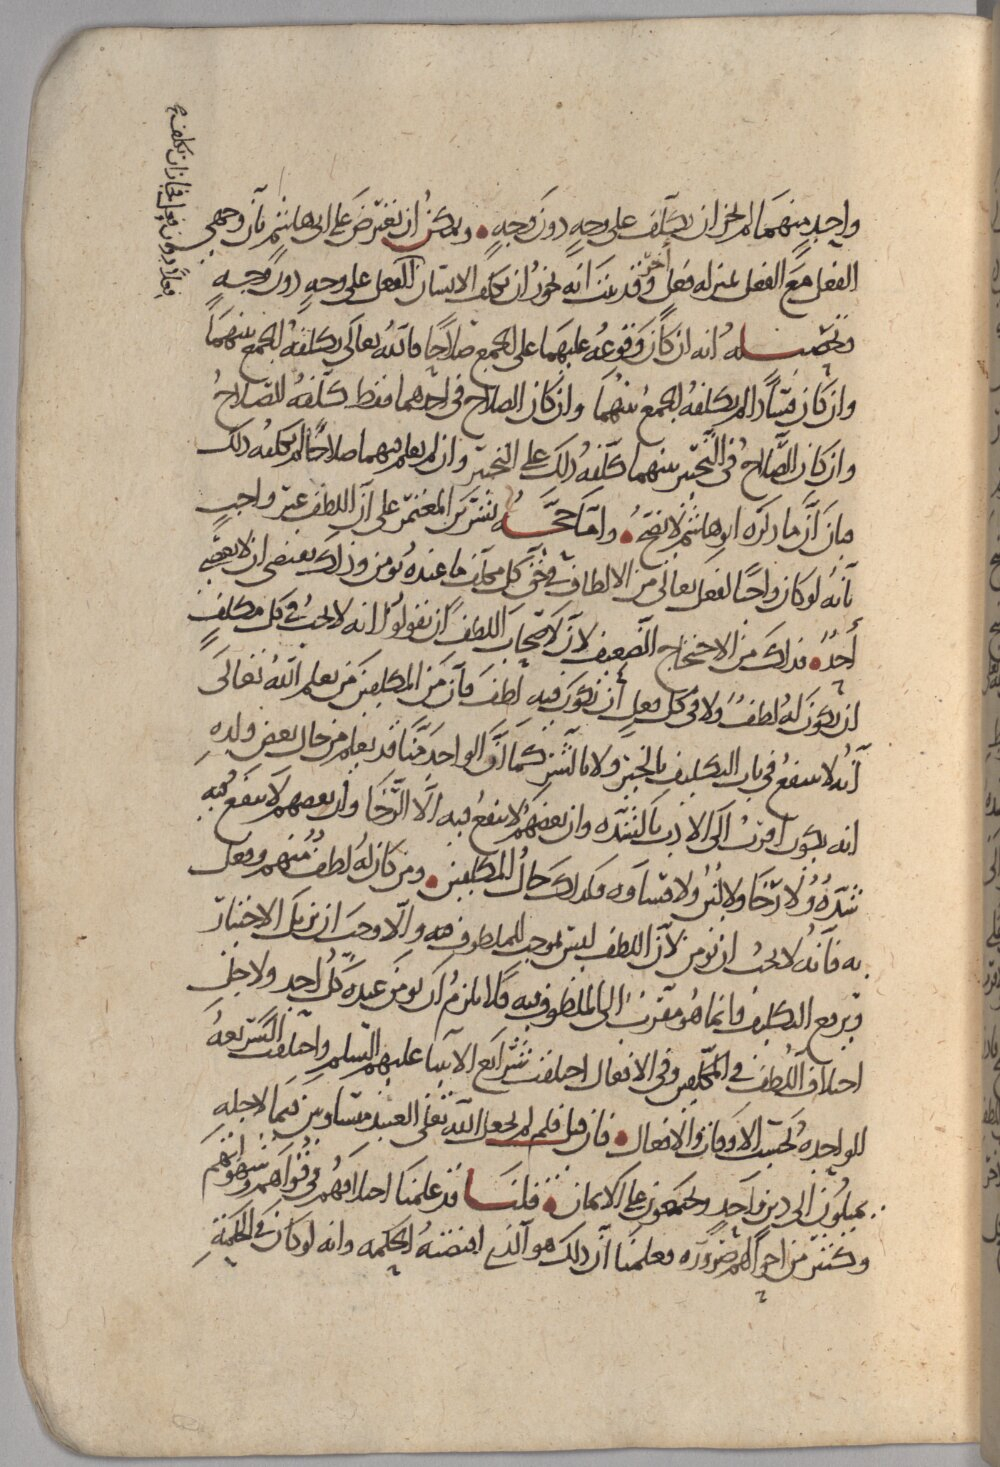 واحد منهما لم يجز ان يكلف على وجه دون وجه • ويمكن ان نعترض على ابى هاشم بان وجهى
الفعل مع الفعل بمنزله فعل آخر وقد بينت انه يجوز ان يكلف الانسان الفعل على وجه دون وجه
انه ان كان وقوعه عليهما على الجمع صلاحا فالله تعالى يكلفه الجمع بينهما
وان كان فسادا لم يكلفه الجمع بينهما وان كان الصلاح فى احدهما فقط كلفه للصلاح
وان كان الصلاح فى التخيير بينهما كلفه ذلك على التخيير وان لم يعلم فيهما صلاحا لم يكلفه ذلك
فبان ان ما ذكره ابو هاشم لا يصح • واما حجه بشر بن المعتمر على ان اللطف غير واجب
بانه لو كان واجبا لفعل تعالى من الالطاف فى حق كل مكلف ما عنده يؤمن وذلك يقتضى ان لا يعصيه
احد • فذلك من الاحتجاج الضعيف لان لاصحاب اللطف ان يقولوا انه لا يجب فى كل مكلف
ان يكون له لطف ولا فى كل فعل ان يكون فيه لطف فان من المكلفين من يعلم الله تعالى
انه لا ينتفع فى باب التكليف بالخير ولا بالشر كما ان الواحد منا قد يعلم من حال بعض ولده
انه يكون اقرب الى الادب بالشده وان بعضهم لا ينفع فيه الا الرخا وان بعضهم لا ينفع فيه
شده ولا رخا ولا لين ولا قساوه فكذلك حال المكلفين • ومن كان له لطف منهم وفعل
به فانه لا يجب ان يؤمن لان اللطف ليس بموجب للملطوف فيه والا وجب ان يزيل الاختيار
ويرفع التكليف وانما هو مقرب الى الملطوف فيه فلا يلزم ان يؤمن عنده كل احد ولاجل
اختلاف اللطف فى المكلفين وفى الافعال اختلفت شرائع الانبيا عليهم السلم واختلفت الشريعه
الواحده بحسب الاوقات والافعال • فان قيل فلم لم يجعل الله تعلى العبيد متساوين فيما لاجله
يميلون الى دين واحد ويجمعون على الايمان • قلنا قد علمنا اختلافهم فى قواهم وشهواتهم
وكثير من احوالهم ضروره فعلمنا ان ذلك هو الذى اقتضته الحكمه وانه لو كان فى الحكمة
فعلا دون فعل جاز ان يكلفه